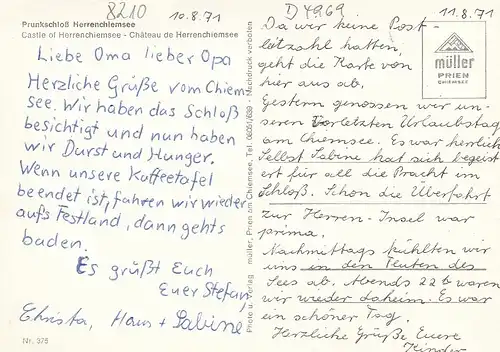 8210
10.8.71
Prunkschloß Herrenchiemsee
Castle of Herrenchiemsee - Château de Herrenchiemsee
Liebe Oma lieber Opa
Herzliche Grüße vom Chiem-
see. Wir haben das Schloß
besichtigt und nun haben
wir Durst und Hunger.
Wenn unsere Kaffeetafel
beendet ist, fahren wir wieder
aufs Festland, dann gehts
baden.
Es grüßt Euch
Euer Stefan,
Christa, Hans + Sabine
Nr. 375
Photo und Verlag müller, Prien am Chiemsee, Tel. 08051/638 - Nachdruck verboten
D 4969
11.8.71
müller
PRIEN
CHIEMSEE
Da wir keine Post
leitzahl hatten,
geht die Karte von
hier aus ab.
Gestern genossen wir un-
seren vorletzten Urlaubstag
am Chiemsee. Es war herrlich
Selbst Sabine hat sich begeist
ert für all die Pracht im
Schloß. Schon die Überfahrt
zur Herren-Insel war
prima.
Nachmittags kühlten wir
uns in den Fluten des
Sees ab. Abends 22 h waren
wir wieder daheim. Es war
ein schöner Tag.
Herzliche Grüße Eure
Kinder